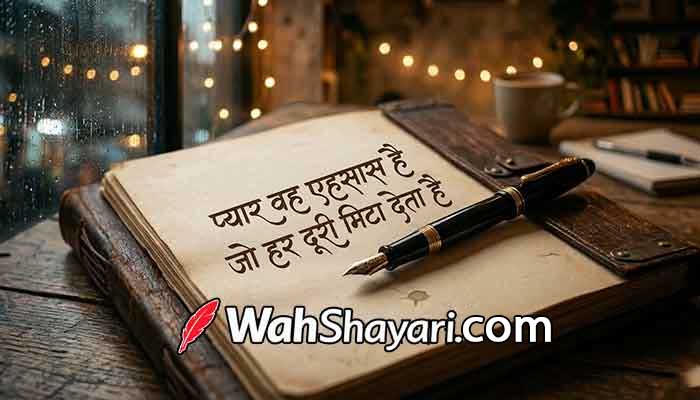 प्यार वह एहसास है
जो हर दूरी मिटा देता है
WahShayari.com